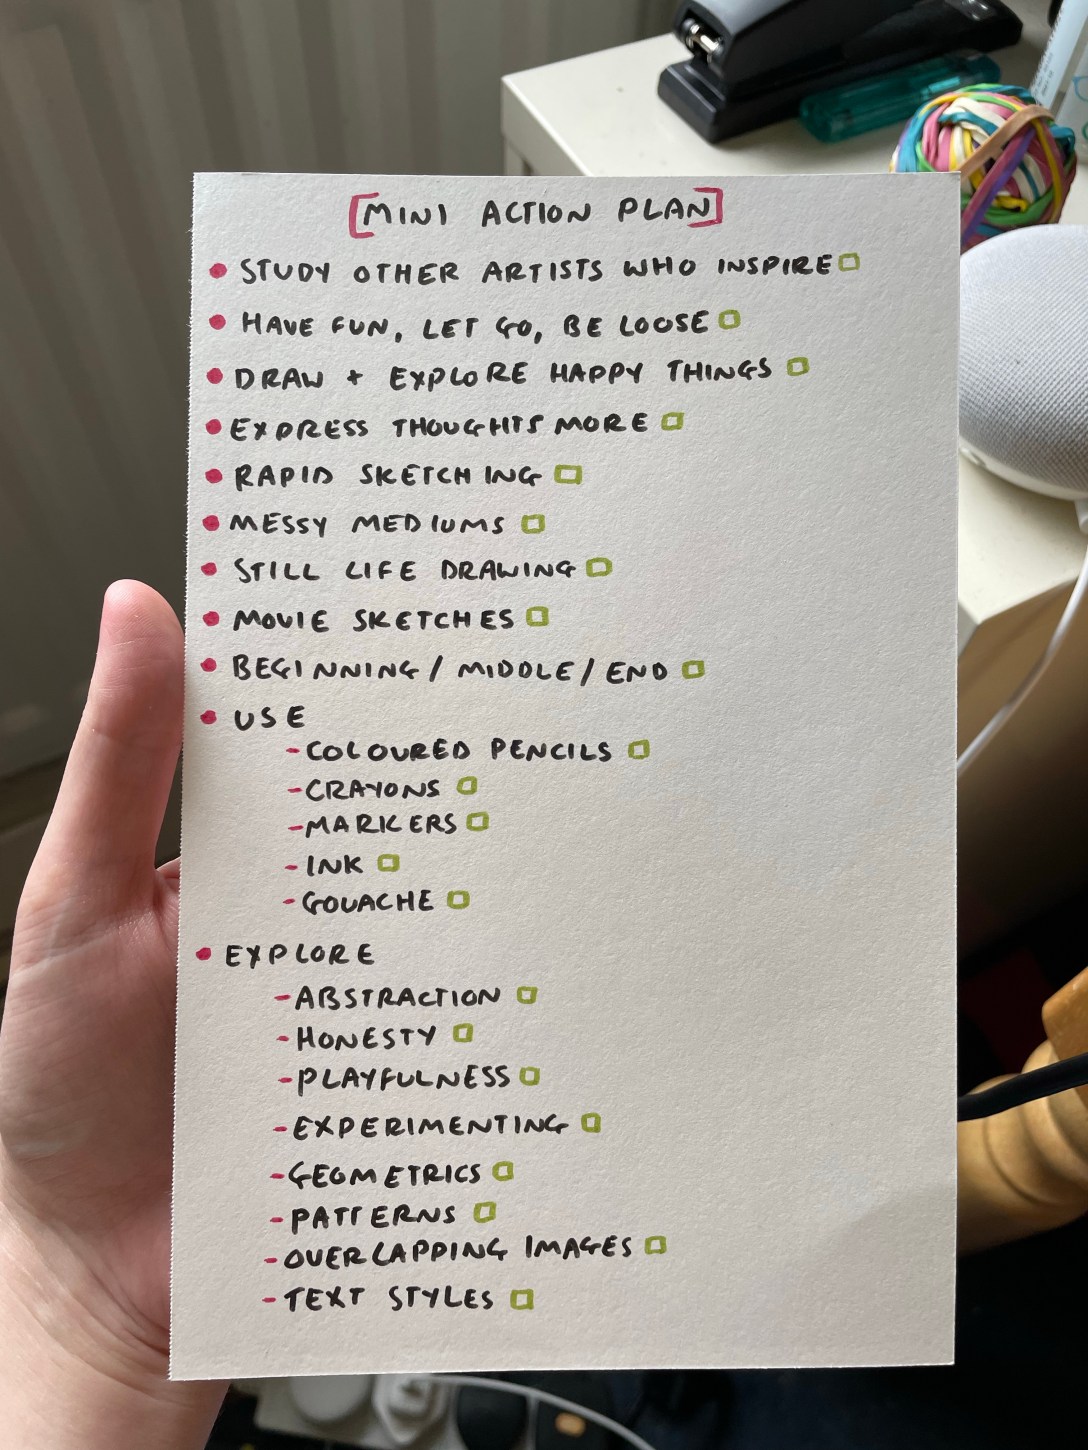 [MINI ACTION PLAN]
• STUDY OTHER ARTISTS WHO INSPIRE □
• HAVE FUN, LET GO, BE LOOSE □
• DRAW + EXPLORE HAPPY THINGS □
• EXPRESS THOUGHTS MORE □
• RAPID SKETCHING □
• MESSY MEDIUMS □
• STILL LIFE DRAWING □
• MOVIE SKETCHES □
• BEGINNING / MIDDLE / END □
• USE
- COLOURED PENCILS □
- CRAYONS □
- MARKERS □
- INK □
- GOUACHE □
• EXPLORE
- ABSTRACTION □
- HONESTY □
- PLAYFULNESS □
- EXPERIMENTING □
- GEOMETRICS □
- PATTERNS □
- OVERLAPPING IMAGES □
- TEXT STYLES □